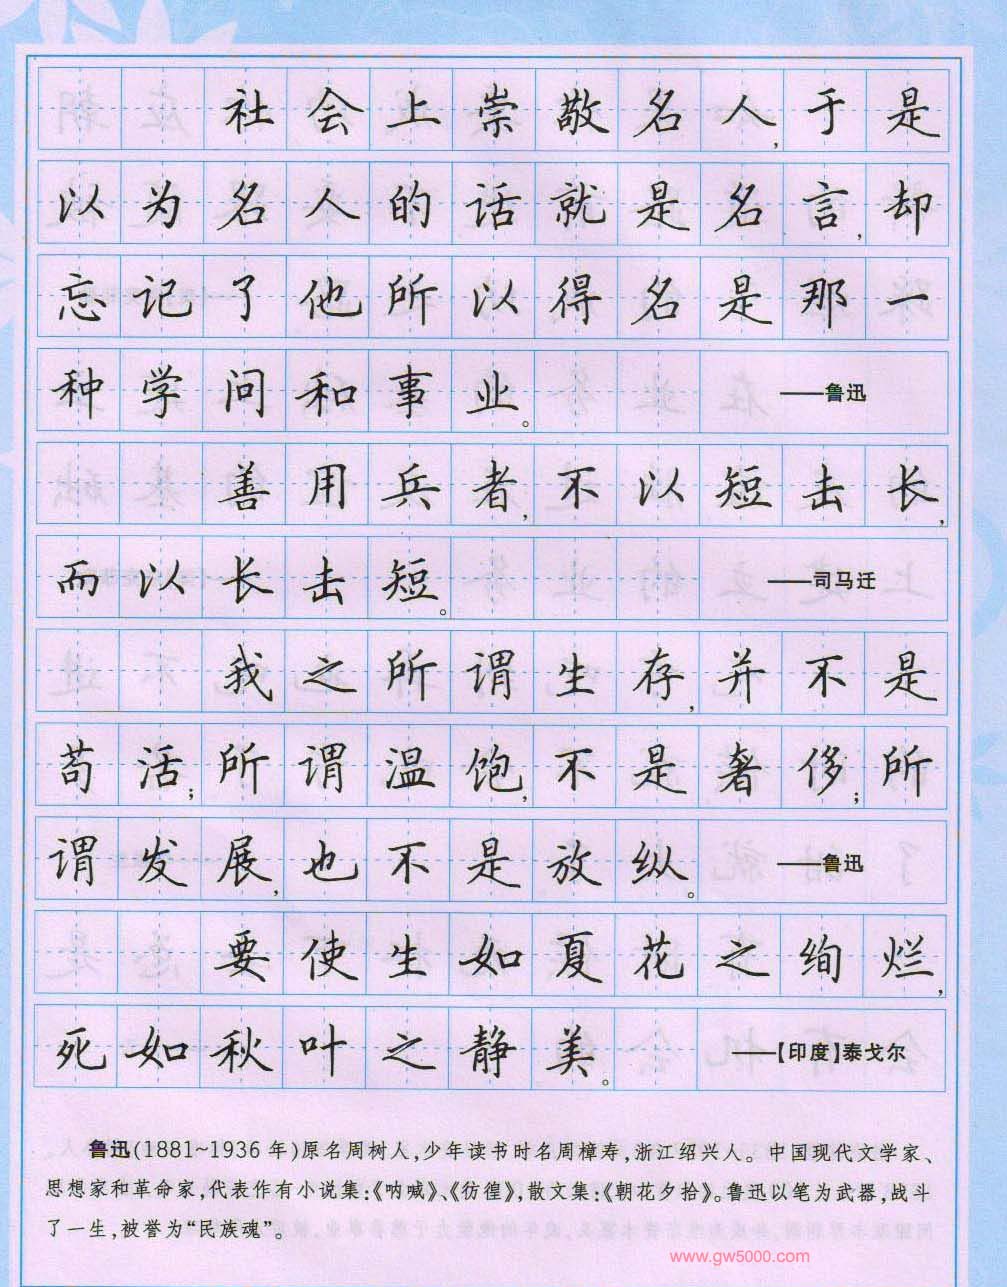 社会上崇敬名人,于是
以为名人的话就是名言,却
忘记了他所以得名是那一
种学问和事业。 ——鲁迅
善用兵者,不以短击长,
而以长击短。 ——司马迁
我之所谓生存,并不是
苟活;所谓温饱,不是奢侈;所
谓发展,也不是放纵。 ——鲁迅
要使生如夏花之绚烂,
死如秋叶之静美。 ——【印度】泰戈尔
鲁迅(1881~1936年)原名周树人,少年读书时名周樟寿,浙江绍兴人。中国现代文学家、
思想家和革命家,代表作有小说集:《呐喊》、《彷徨》,散文集:《朝花夕拾》。鲁迅以笔为武器,战斗
了一生,被誉为“民族魂”。
www.gw5000.com